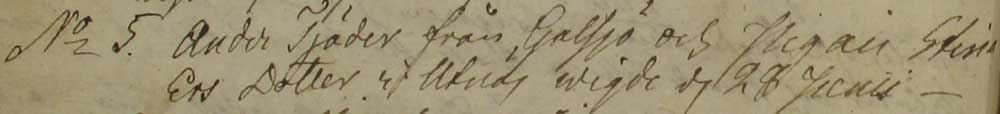 No 5. Anders Tjäder från Galsjö och Pigan Stina
Ers Dotter i Utnäs wigde d 28 Junii –